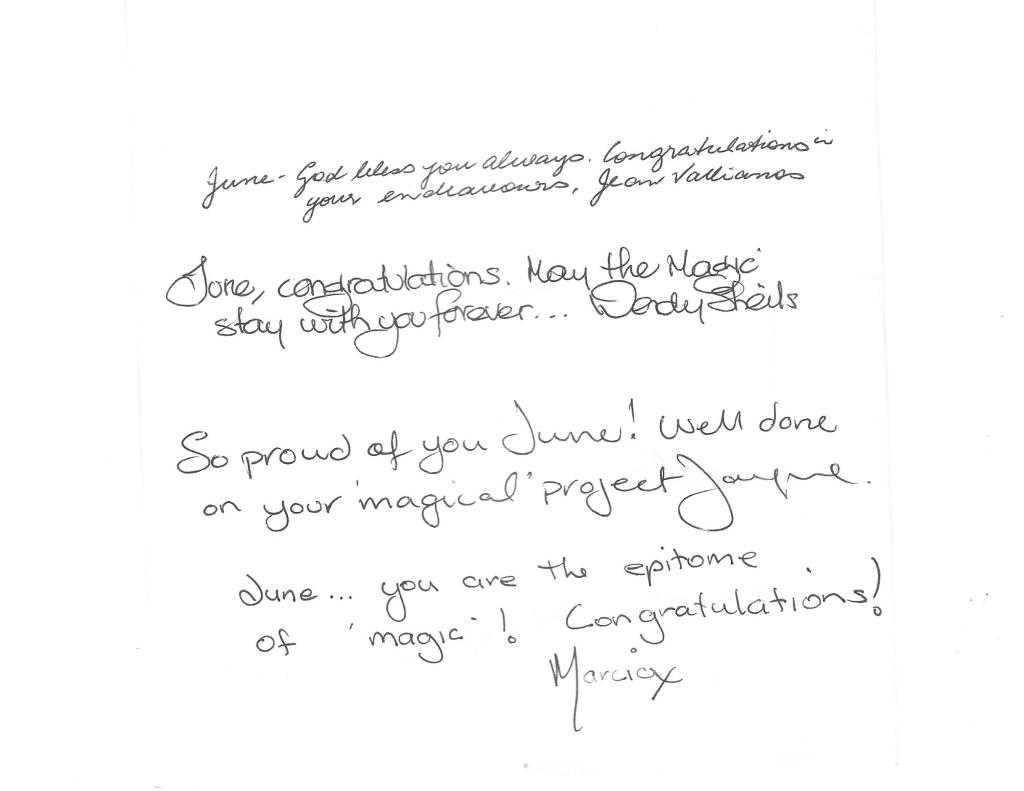 June - God bless you always. Congratulations in
your endeavours, Jean Vallianos
June, congratulations. May the Magic
stay with you forever... Wendy Sheils
So proud of you June! Well done
on your 'magical' project Jayne.
June... you are the epitome
of 'magic'! Congratulations!
Marcia x